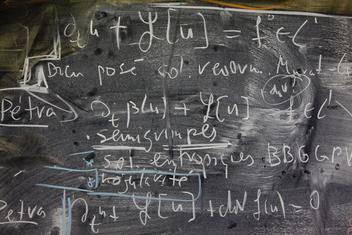 ∂ₜu + ℒ[u] = f ∈ L¹
Bien posé sol. renorm.
Petra ∂ₜβ(u) + ℒ[u] f ∈ L¹
• semigroupes
• sol entropiques BBGGPV
Petra ∂ₜu + ℒ[u] + div f(u) = 0